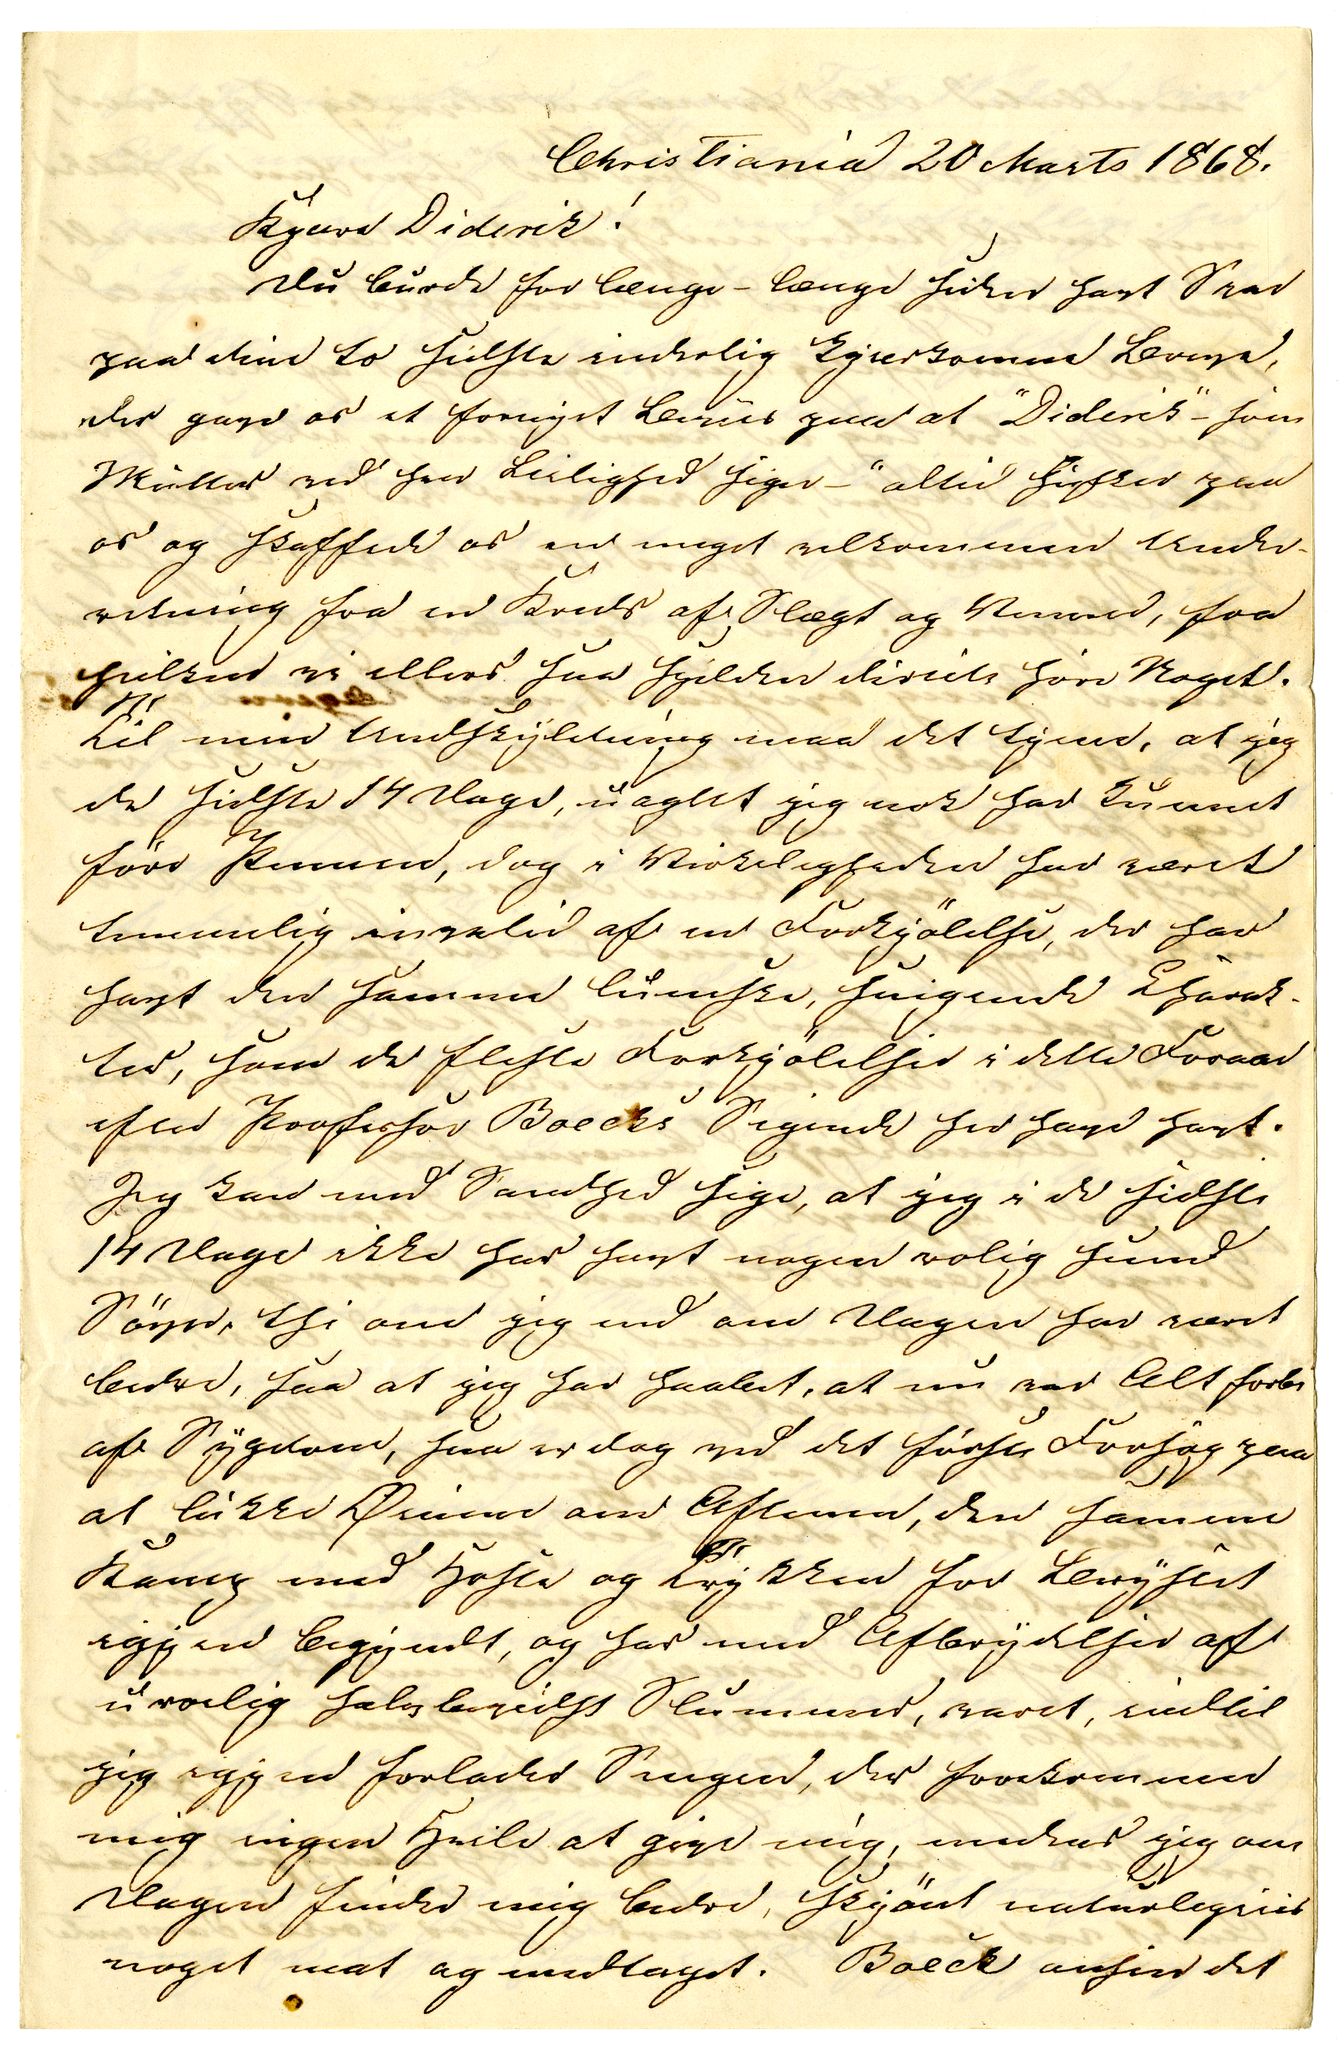 Christiania 20 Marts 1868.
Kjære Diderik!
Du burde for længe - længe siden havt Svar
paa dine to sidste inderlig kjærkomne Breve,
der gave os et fornyet Beviis paa at "Diderik" - som
Mutter ved hver Leilighed siger - "altid husker paa
os og skaffede os en meget velkommen Under-
retning fra en Kreds af Slægt og Venner, fra
hvilken vi ellers saa sjelden directe høre Noget.
Til min Undskyldning maa det tjene, at jeg
de sidste 14 Dage, uagtet jeg nok har kunnet
føre Pennen, dog i Virkeligheden har været
temmelig invalid af en Forkjölelse, der har
havt den samme lumske, snigende Charak-
ter, som de fleste Forkjölelser i dette Foraar
efter Professor Boecks Sigende her have havt.
Jeg kan med Sandhed sige, at jeg i de sidste
14 Dage ikke har havt nogen rolig sund
Sövn, thi om jeg end om Dagen har været
bedre, saa at jeg har haabet, at nu var Alt forbi
af Sygdom, saa er dog ved det første Forsøg paa
at lukke Øinene om Aftenen, den samme
Kamp med Hoste og Trykken for Brystet
igjen begyndt, og har med Afbrydelser af
urolig halvbevidst Slummer, varet, indtil
jeg igjen forlader Sengen, der forekommer
mig ingen Hvile at give mig, medens jeg om
Dagen finder mig bedre, skjönt naturligviis
noget mat og medtaget. Boeck anseer det